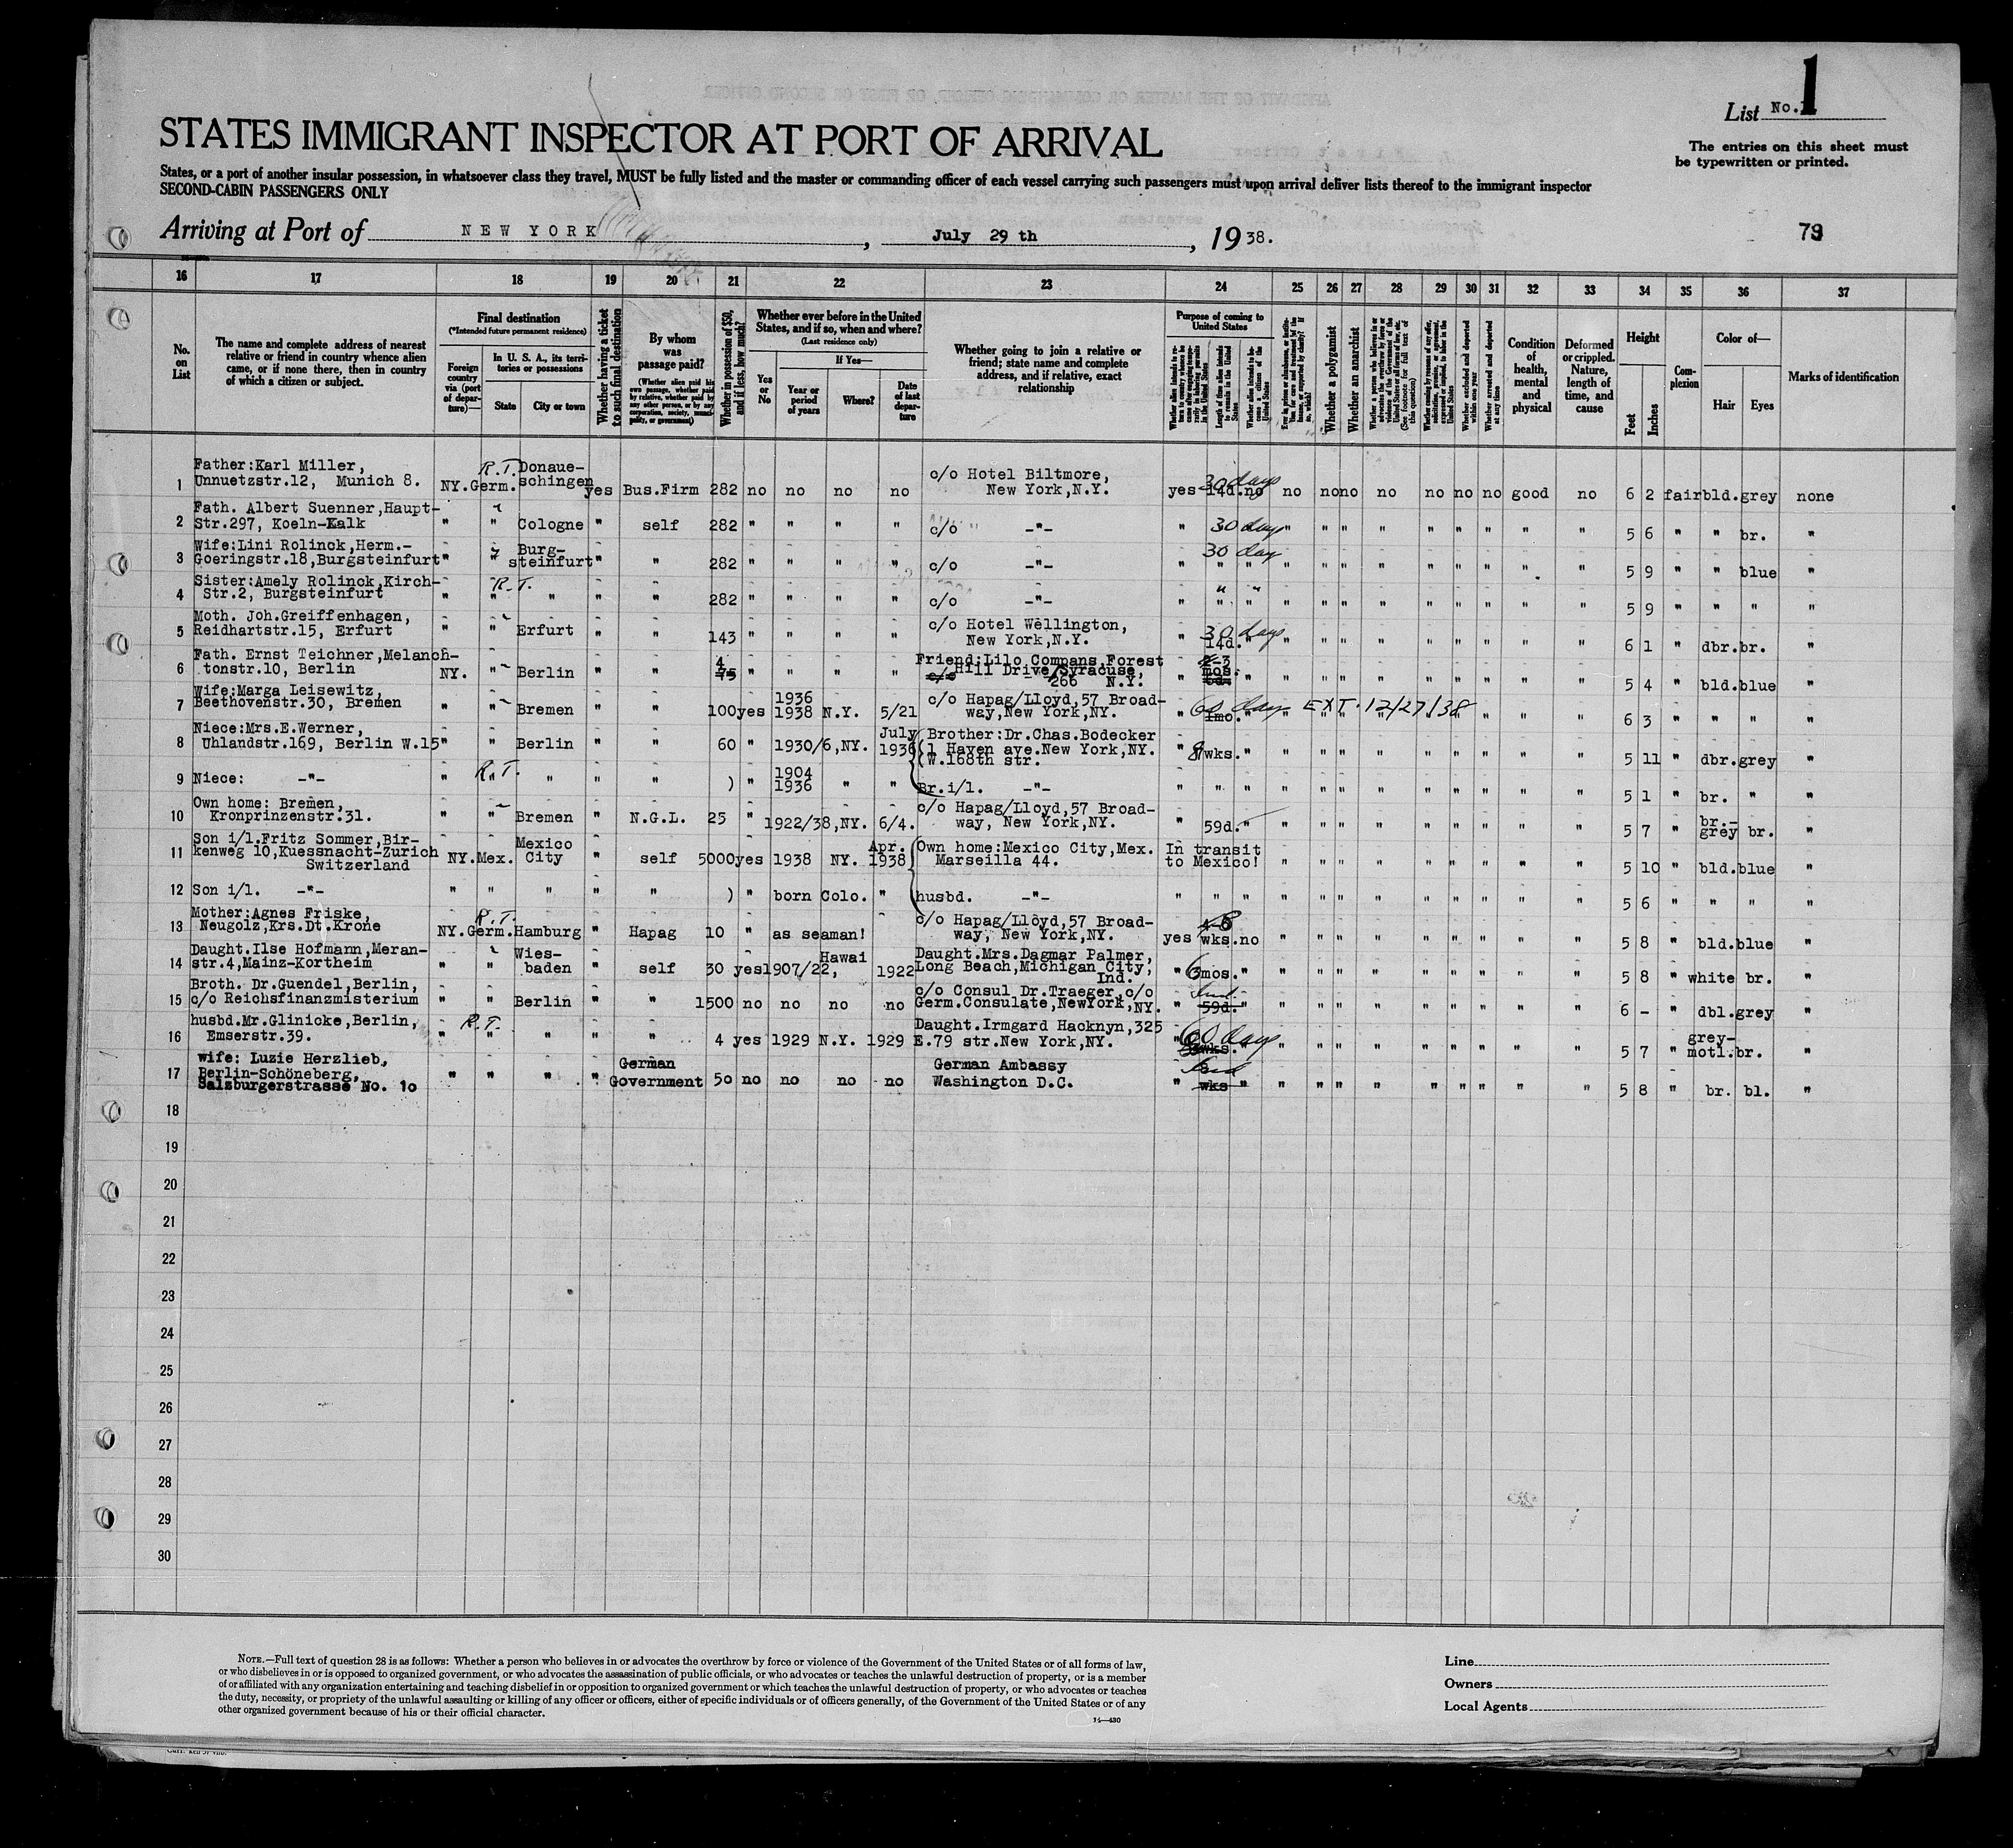 List No. 1
STATES IMMIGRANT INSPECTOR AT PORT OF ARRIVAL
The entries on this sheet must
be typewritten or printed.
States, or a port of another insular possession, in whatsoever class they travel, MUST be fully listed and the master or commanding officer of each vessel carrying such passengers must upon arrival deliver lists thereof to the immigrant inspector
SECOND-CABIN PASSENGERS ONLY
Arriving at Port of NEW YORK, July 29 th, 1938.
73
16 17 18 19 20 21 22 23 24 25 26 27 28 29 30 31 32 33 34 35 36 37
No. on List
The name and complete address of nearest
relative or friend in country whence alien
came, or if none there, then in country
of which a citizen or subject.
Final destination
(*Intended future permanent residence)
Foreign country via (port of departure)—
In U. S. A., its territories or possessions
State
City or town
Whether having a ticket to such final destination
By whom was passage paid?
(Whether alien paid his own passage, whether paid by relative, whether paid by any other person, or by any corporation, society, municipality, or government)
Whether in possession of $50, and if less, how much?
Whether ever before in the United
States, and if so, when and where?
(Last residence only)
Yes or No
If Yes—
Year or period of years
Where?
Date of last departure
Whether going to join a relative or
friend; state name and complete
address, and if relative, exact
relationship
Purpose of coming to United States
Length of time alien intends to remain in the United States
Whether alien intends to become a citizen of the United States
Whether a polygamist
Whether an anarchist
Whether excluded and deported within one year
Whether arrested and deported at any time
Condition of health, mental and physical
Deformed or crippled. Nature, length of time, and cause
Height
Feet
Inches
Complexion
Color of—
Hair
Eyes
Marks of identification
1 Father:Karl Miller, R.T. Donaue- c/o Hotel Biltmore, 30 days
Unnuetzstr.12, Munich 8. NY.Germ. schingen yes Bus.Firm 282 no no no no New York,N.Y. yes 14d. no no no no no no no no good no 6 2 fair bld. grey none
2 Fath. Albert Suenner,Haupt-
Str.297, Koeln-Kalk " " Cologne " self 282 " " " " c/o -"- " 30 days " " " " " " " " " 5 6 " " br. "
3 Wife:Lini Rolinck,Herm.- Burg- 30 day
Goeringstr.18,Burgsteinfurt " " steinfurt " " 282 " " " " c/o -"- " " " " " " " " " " " " " 5 9 " " blue "
4 Sister:Amely Rolinck,Kirch- R.T. " "
Str.2, Burgsteinfurt " " " " " 282 " " " " c/o -"- " " " " " " " " " " " " " 5 9 " " " "
5 Moth. Joh.Greiffenhagen, c/o Hotel Wellington, 30 days
Reidhartstr.15, Erfurt " " Erfurt " " 143 " " " " New York,N.Y. " 14d. " " " " " " " " " " " 6 1 " dbr. br. "
6 Fath. Ernst Teichner,Melanch- 4 Friend:Lilo Compans,Forest 2-3
tonstr.10, Berlin NY. " Berlin " " 75 " " " " c/o Hill Drive/Syracuse, mos.
266 N.Y. " " " " " " " " " " " 5 4 " bld. blue "
7 Wife:Marga Leisewitz, 1936 c/o Hapag/Lloyd,57 Broad- 60 days EXT. 12/27/38
Beethovenstr.30, Bremen " " Bremen " " 100 yes 1938 N.Y. 5/21 way,New York,NY. " 1mo. " " " " " " " " " " " 6 3 " " " "
8 Niece:Mrs.E.Werner, July Brother:Dr.Chas.Bodecker
Uhlandstr.169, Berlin W.15 " " Berlin " " 60 " 1930/6,NY. 1936 (1 Haven ave.New York,NY. " 8 wks. " " " " " " " " " " " 5 11 " dbr. grey "
(W.168th str.
9 Niece: -"- " R.T. " " " " ) " 1904
1936 " " Br.i/l. -"- " " " " " " " " " " " " " 5 1 " br. " "
10 Own home: Bremen, c/o Hapag/Lloyd,57 Broad-
Kronprinzenstr.31. " " Bremen " N.G.L. 25 " 1922/38,NY. 6/4. way, New York,NY. " 59d. " " " " " " " " " " " 5 7 " br.-grey br. "
11 Son i/l.Fritz Sommer,Bir- Mexico Apr. Own home:Mexico City,Mex. In transit
kenweg 10,Kuessnacht-Zurich NY.Mex. City " self 5000 yes 1938 NY. 1938 Marseilla 44. to Mexico! " " " " " " " " " 5 10 " bld. blue "
Switzerland
12 Son i/l. -"- " " " " " ) " born Colo. " husbd. -"- " " " " " " " " " " " " " 5 6 " " " "
13 Mother:Agnes Friske, R.T. c/o Hapag/Lloyd,57 Broad-
Neugolz,Krs.Dt.Krone NY.Germ. Hamburg " Hapag 10 " as seaman! way, New York,NY. yes wks. no " " " " " " " " " 5 8 " bld. blue "
14 Daught.Ilse Hofmann,Meran- Wies- Hawai Daught.Mrs.Dagmar Palmer,
str.4,Mainz-Kortheim " " baden " self 30 yes 1907/22, 1922 Long Beach,Michigan City, " 6 mos. " " " " " " " " " " " 5 8 " white br. "
Ind.
15 Broth. Dr.Guendel,Berlin, c/o Consul Dr.Traeger,c/o Ind.
c/o Reichsfinanzmisterium " " Berlin " " 1500 no no no no Germ.Consulate,NewYork,NY. " 59d. " " " " " " " " " " " 6 - " dbl. grey "
16 husbd.Mr.Glinicke,Berlin, R.T. Daught.Irmgard Hacknyn,325 60 days
Emserstr.39. " " " " " 4 yes 1929 N.Y. 1929 E.79 str.New York,NY. " wks. " " " " " " " " " " " 5 7 " grey-motl. br. "
17 wife: Luzie Herzlieb, German German Ambassy Ind
Berlin-Schöneberg, " " " " Government 50 no no no no Washington D.C. " wks " " " " " " " " " " " 5 8 " br. bl. "
Salzburgerstrasse No. 10
18
19
20
21
22
23
24
25
26
27
28
29
30
NOTE.—Full text of question 28 is as follows: Whether a person who believes in or advocates the overthrow by force or violence of the Government of the United States or of all forms of law,
or who disbelieves in or is opposed to organized government, or who advocates the assassination of public officials, or who advocates or teaches the unlawful destruction of property, or is a member
of or affiliated with any organization entertaining and teaching disbelief in or opposition to organized government or which teaches the unlawful destruction of property, or who advocates or teaches
the duty, necessity, or propriety of the unlawful assaulting or killing of any officer or officers, either of specific individuals or of officers generally, of the Government of the United States or of any
other organized government because of his or their official character.
14—430
Line
Owners
Local Agents